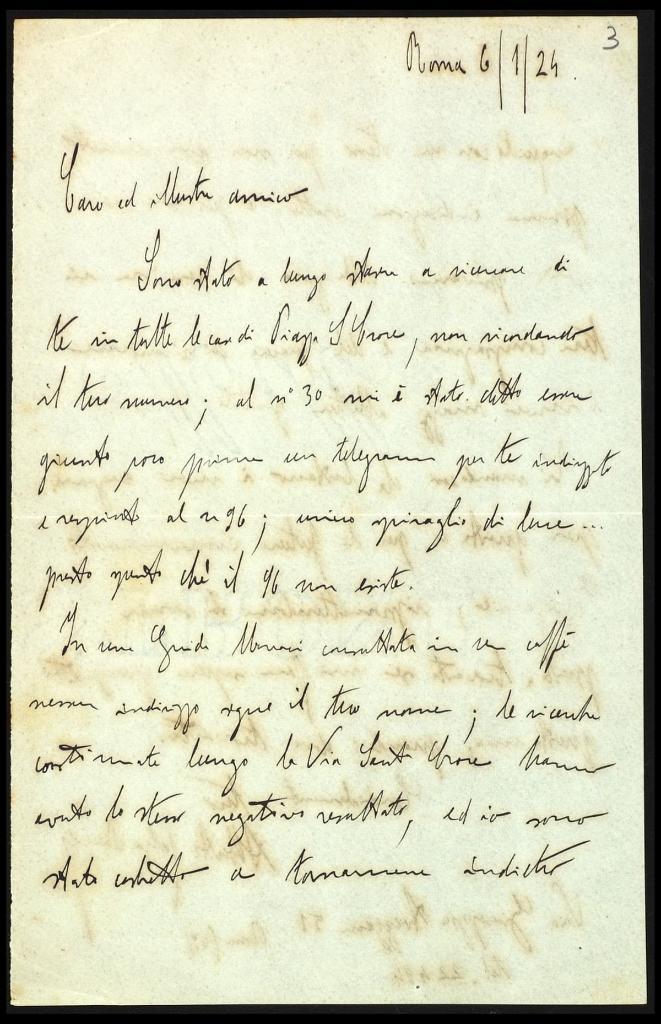 3
Roma 6/1/24.
Caro ed illustre amico
Sono stato a lungo stasera a ricercare di
te in tutte le case di Piazza S Croce, non ricordando
il tuo numero; al n° 30 mi è stato detto essere
giunto poco prima un telegramma per te indirizzato
e respinto al n 96; unico spiraglio di luce...
presto spento chè il 96 non esiste.
In una Guida Monaci consultata in un caffè
nessun indirizzo segue il tuo nome; le ricerche
continuate lungo la Via Santa Croce hanno
avuto lo stesso negativo resultato, ed io sono
stato costretto a tornarmene indietro